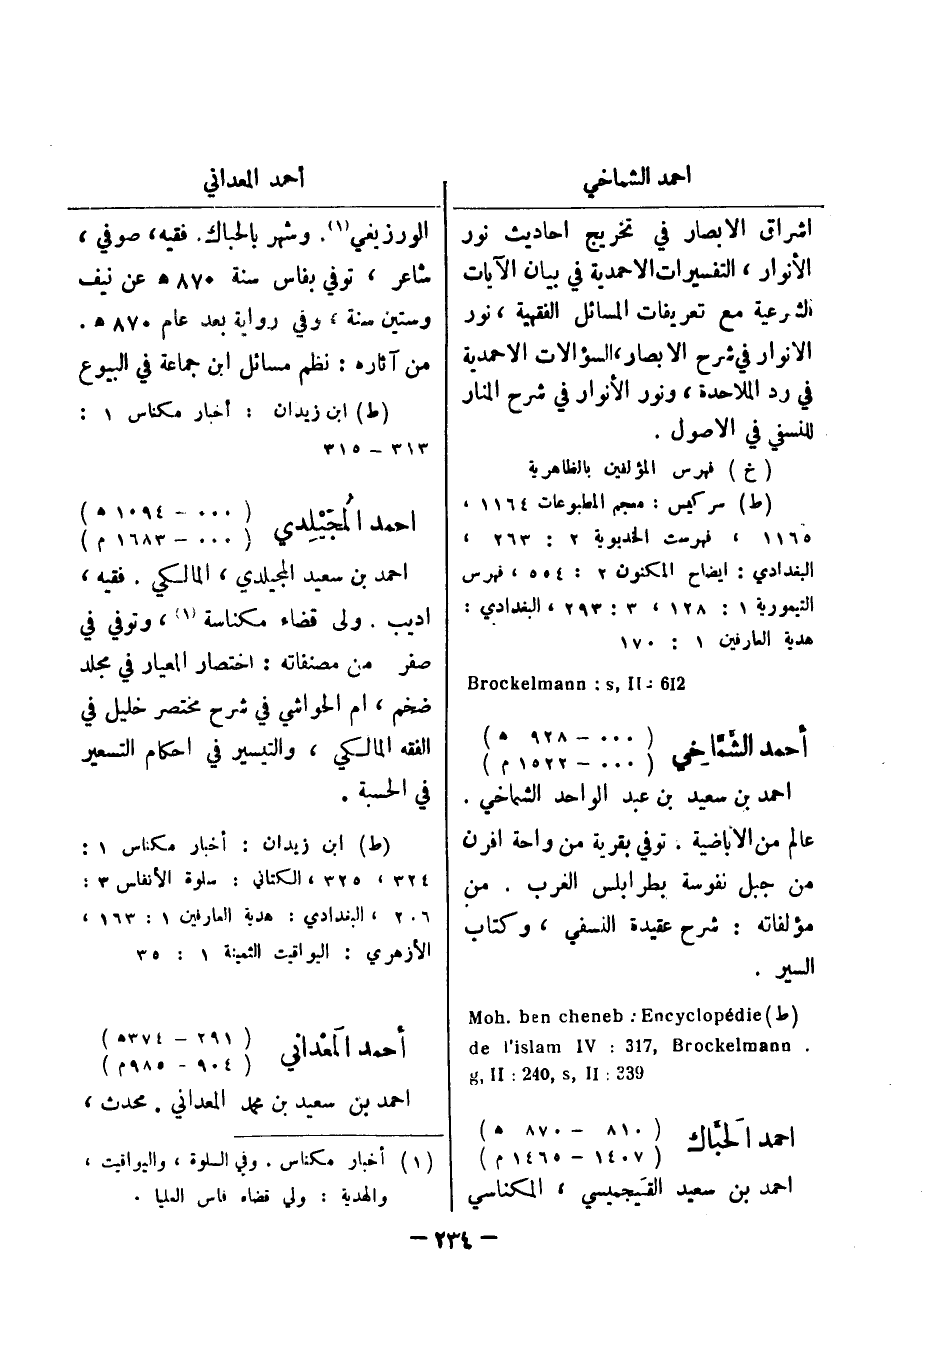 احمد الشماخي
اشراق الابصار في تخريج احاديث نور
الأنوار ، التفسيرات الاحمدية في بيان الآيات
الشرعية مع تعريفات المسائل الفقهية ، نور
الانوار في شرح الابصار ، السؤالات الاحمدية
في رد الملاحدة ، ونور الأنوار في شرح المنار
للنسفي في الاصول .
( خ ) فهرس المؤلفين بالظاهرية
(ط) سركيس : معجم المطبوعات ١١٦٤ ،
١١٦٥ ، فهرست الخديوية ٢ : ٢٦٣ ،
البغدادي : ايضاح المكنون ٢ : ٥٥٤ ، فهرس
التيمورية ١ : ١٢٨ ، ٣ : ٢٩٣ ، البغدادي :
هدية العارفين ١ : ١٧٠
Brockelmann : s, II : 612
أحمد الشَّمَّاخِي ( ٠٠٠ – ٩٢٨ ه )
( ٠٠٠ – ١٥٢٢ م )
احمد بن سعيد بن عبد الواحد الشماخي .
عالم من الاباضية . توفي بقرية من واحة افرن
من جبل نفوسة بطرابلس الغرب . من
مؤلفاته : شرح عقيدة النسفي ، وكتاب
السير .
(ط) Moh. ben cheneb : Encyclopédie
de l'islam IV : 317, Brockelmann .
g, II : 240, s, II : 339
احمد الحَبَّاك ( ٨١٠ – ٨٧٠ ه )
( ١٤٠٧ – ١٤٦٥ م )
احمد بن سعيد القيجميسي ، المكناسي
أحمد المعداني
الورزيغي (١). وشهر بالحباك. فقيه، صوفي ،
شاعر ، توفي بفاس سنة ٨٧٠ ه عن نيف
وستين سنة ، وفي رواية بعد عام ٨٧٠ ه .
من آثاره : نظم مسائل ابن جماعة في البيوع
(ط) ابن زيدان : أخبار مكناس ١ :
٣١٣ – ٣١٥
احمد المُجَيْلِدي ( ٠٠٠ – ١٠٩٤ ه )
( ٠٠٠ – ١٦٨٣ م )
احمد بن سعيد المجيلدي ، المالكي . فقيه ،
اديب . ولى قضاء مكناسة (١) ، وتوفي في
صفر من مصنفاته : اختصار المعيار في مجلد
ضخم ، ام الحواشي في شرح مختصر خليل في
الفقه المالكي ، والتيسير في احكام التسعير
في الحسبة .
(ط) ابن زيدان : أخبار مكناس ١ :
٣٢٤ ، ٣٢٥ ، الكتاني : سلوة الأنفاس ٣ :
٢٠٦ ، البغدادي : هدية العارفين ١ : ١٦٣ ،
الأزهري : اليواقيت الثمينة ١ : ٣٥
أحمد المَعْداني ( ٢٩١ – ٣٧٤ه )
( ٩٠٤ – ٩٨٥م )
احمد بن سعيد بن محمد المعداني . محدث ،
(١) أخبار مكناس . وفي السلوة ، واليواقيت ،
والهدية : ولي قضاء فاس العليا .
– ٢٣٤ –